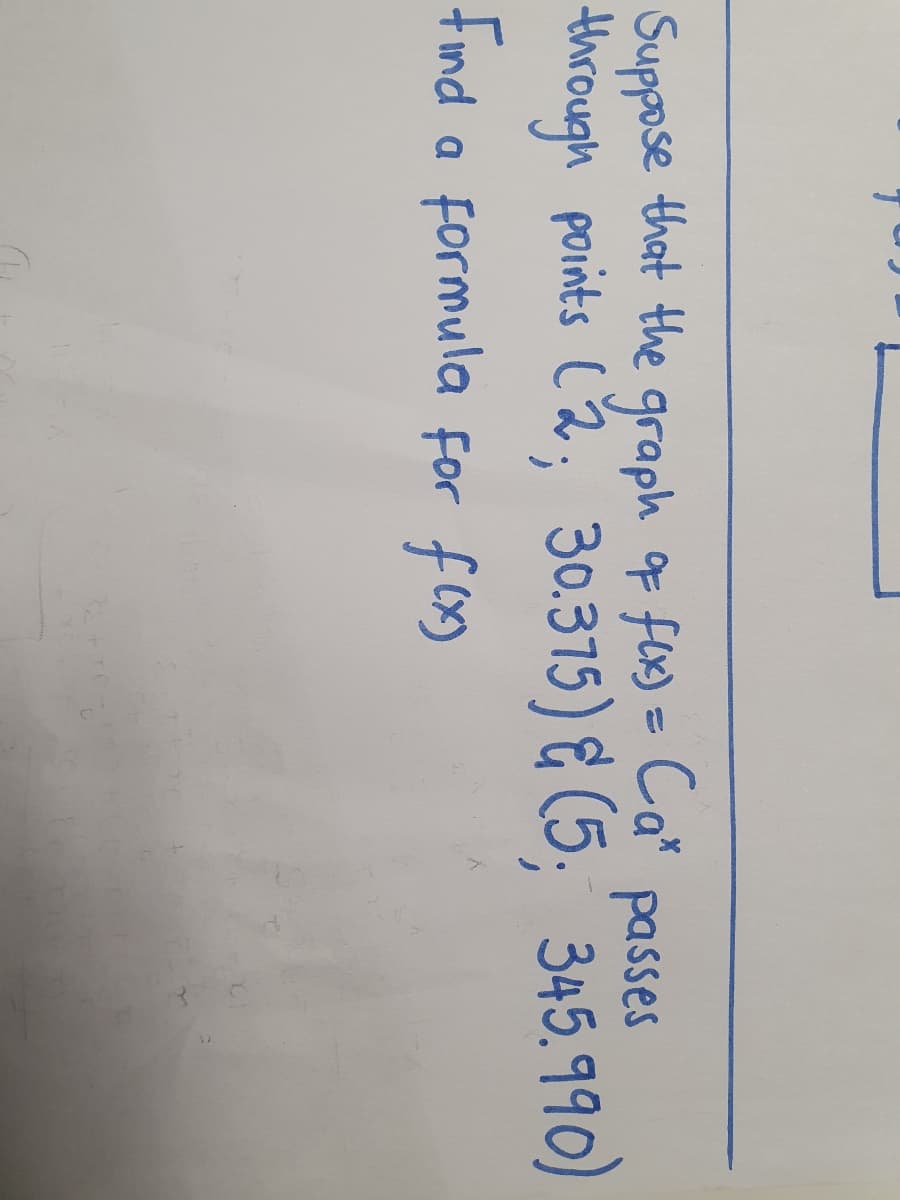 Suppose that the graph of f(x) = Ca^x passes
through points (2; 30.375) & (5; 345.990)
find a formula for f(x)